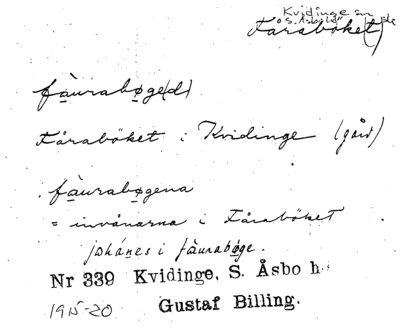 Kvidinge sn
S. Åsbo hd
Fåraböket
fàurabøge(d)
Fåraböket i Kvidinge (gård)
fàurabøgena
= invånarna i Fåraböket
johánes i fàurabøge.
Nr 339 Kvidinge, S. Åsbo h.
1915-20 Gustaf Billing.